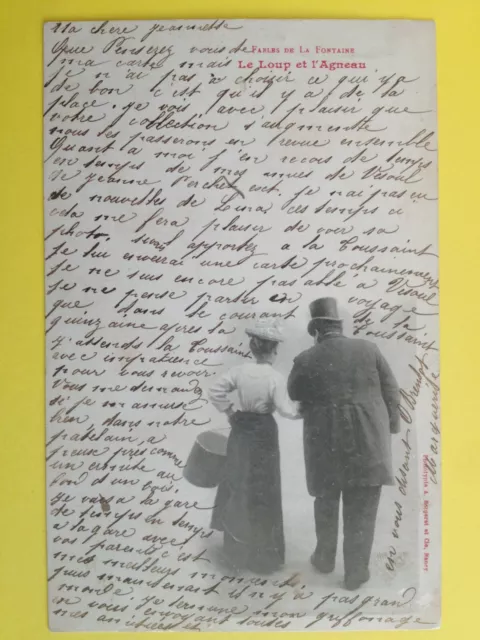 Ma chere jeannette
FABLES DE LA FONTAINE
Le Loup et l'Agneau
Que Penserez vous de
ma carte mais
je n'ai pas a choisir ce qui y a
de bon c'est qu'il y a de la
place, je vois avec plaisir que
votre collection s'augmente
nous les passerons en revue ensemble
Quant a moi j'en recois de temps
en temps de mes amies de Vesoul
de jeanne Perchet ect. je n'ai pas eu
de nouvelles de ces temps ci
cela me fera plaisir de voir sa
photo, apportez a la Toussaint
je lui enverai une carte prochainement
je ne suis encore pas allé a Vesoul
je ne pense partir en voyage
que dans le courant de la
quinzaine apres la Toussaint
j'attends la Toussaint
avec impatience
pour vous revoir.
Vous me demandez
si je m'amuse
bien dans notre
patelain, a
peu près comme
un ermite au
bord d'un bois.
je vais a la gare
de temps en temps
a la gare avec
vos parents c'est
mes meilleurs moments
puis maintenant il n'y a pas grand
monde je termine mon griffonage
en vous envoyant toutes
mes amitiés et
en vous disant
Marguerite
Phototypie A. Bergeret et Cie, Nancy